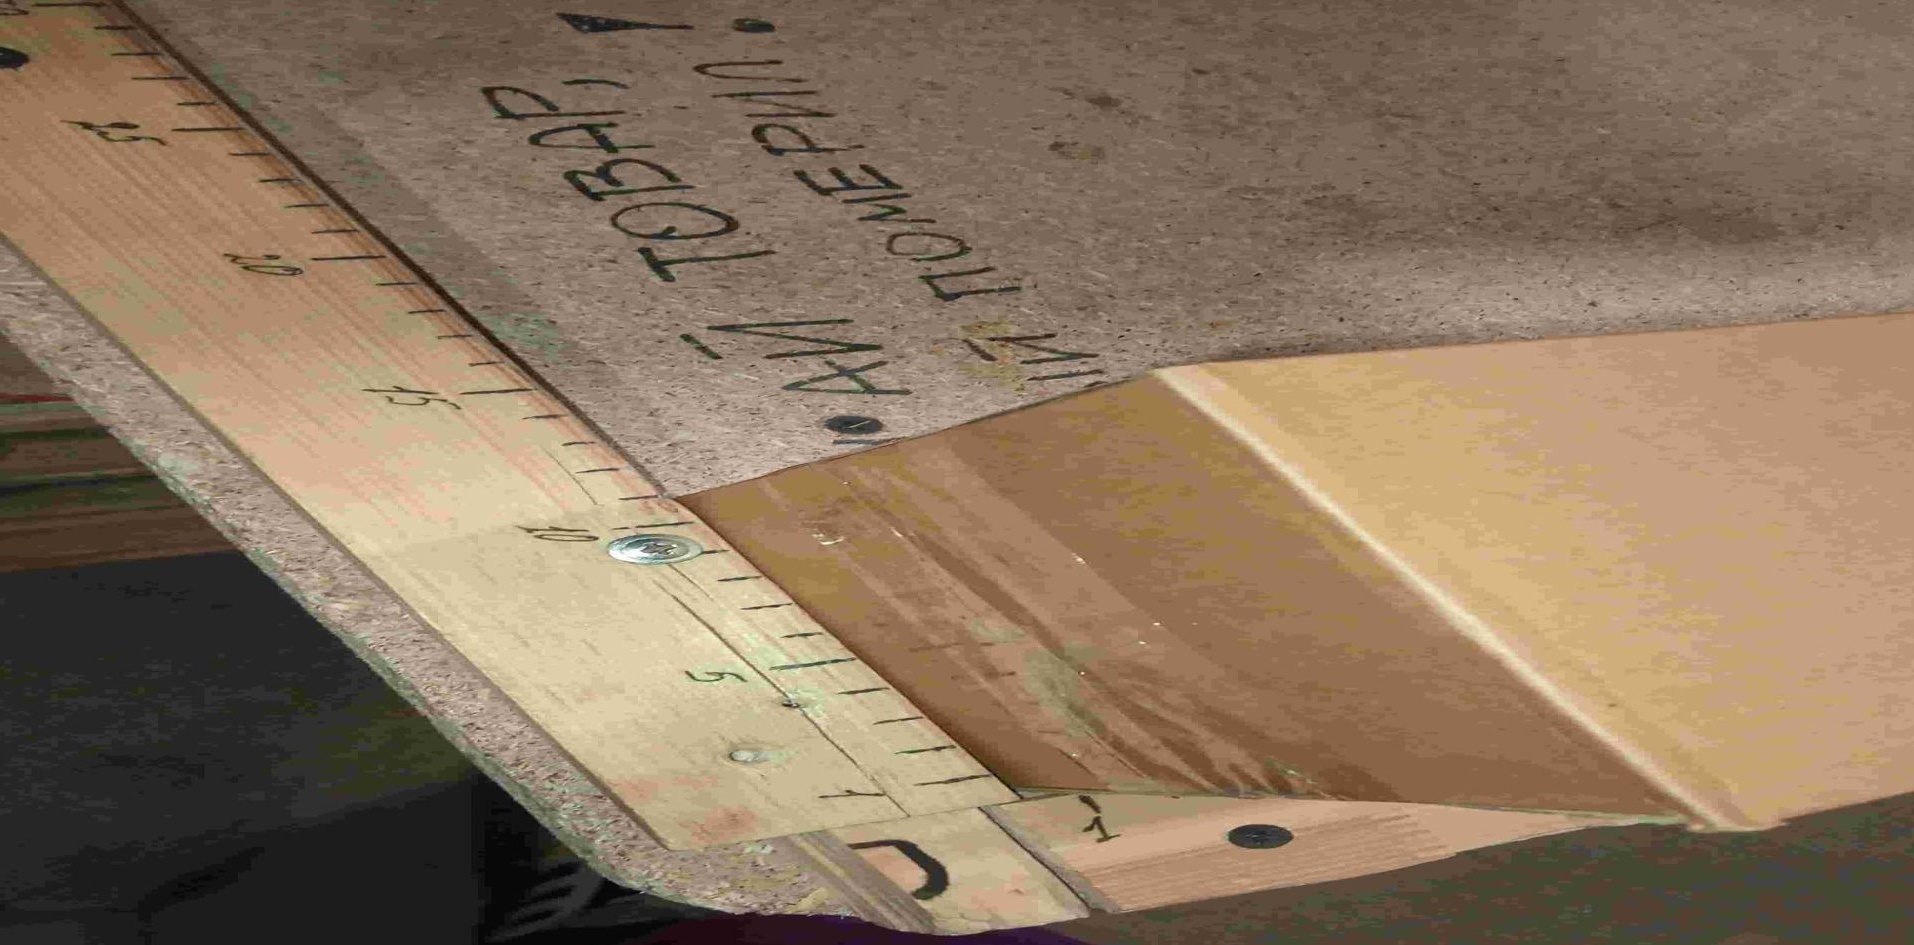 АЙ ТОВАР,
Й ПОМЕРИ
25
20
15
10
5
1
1